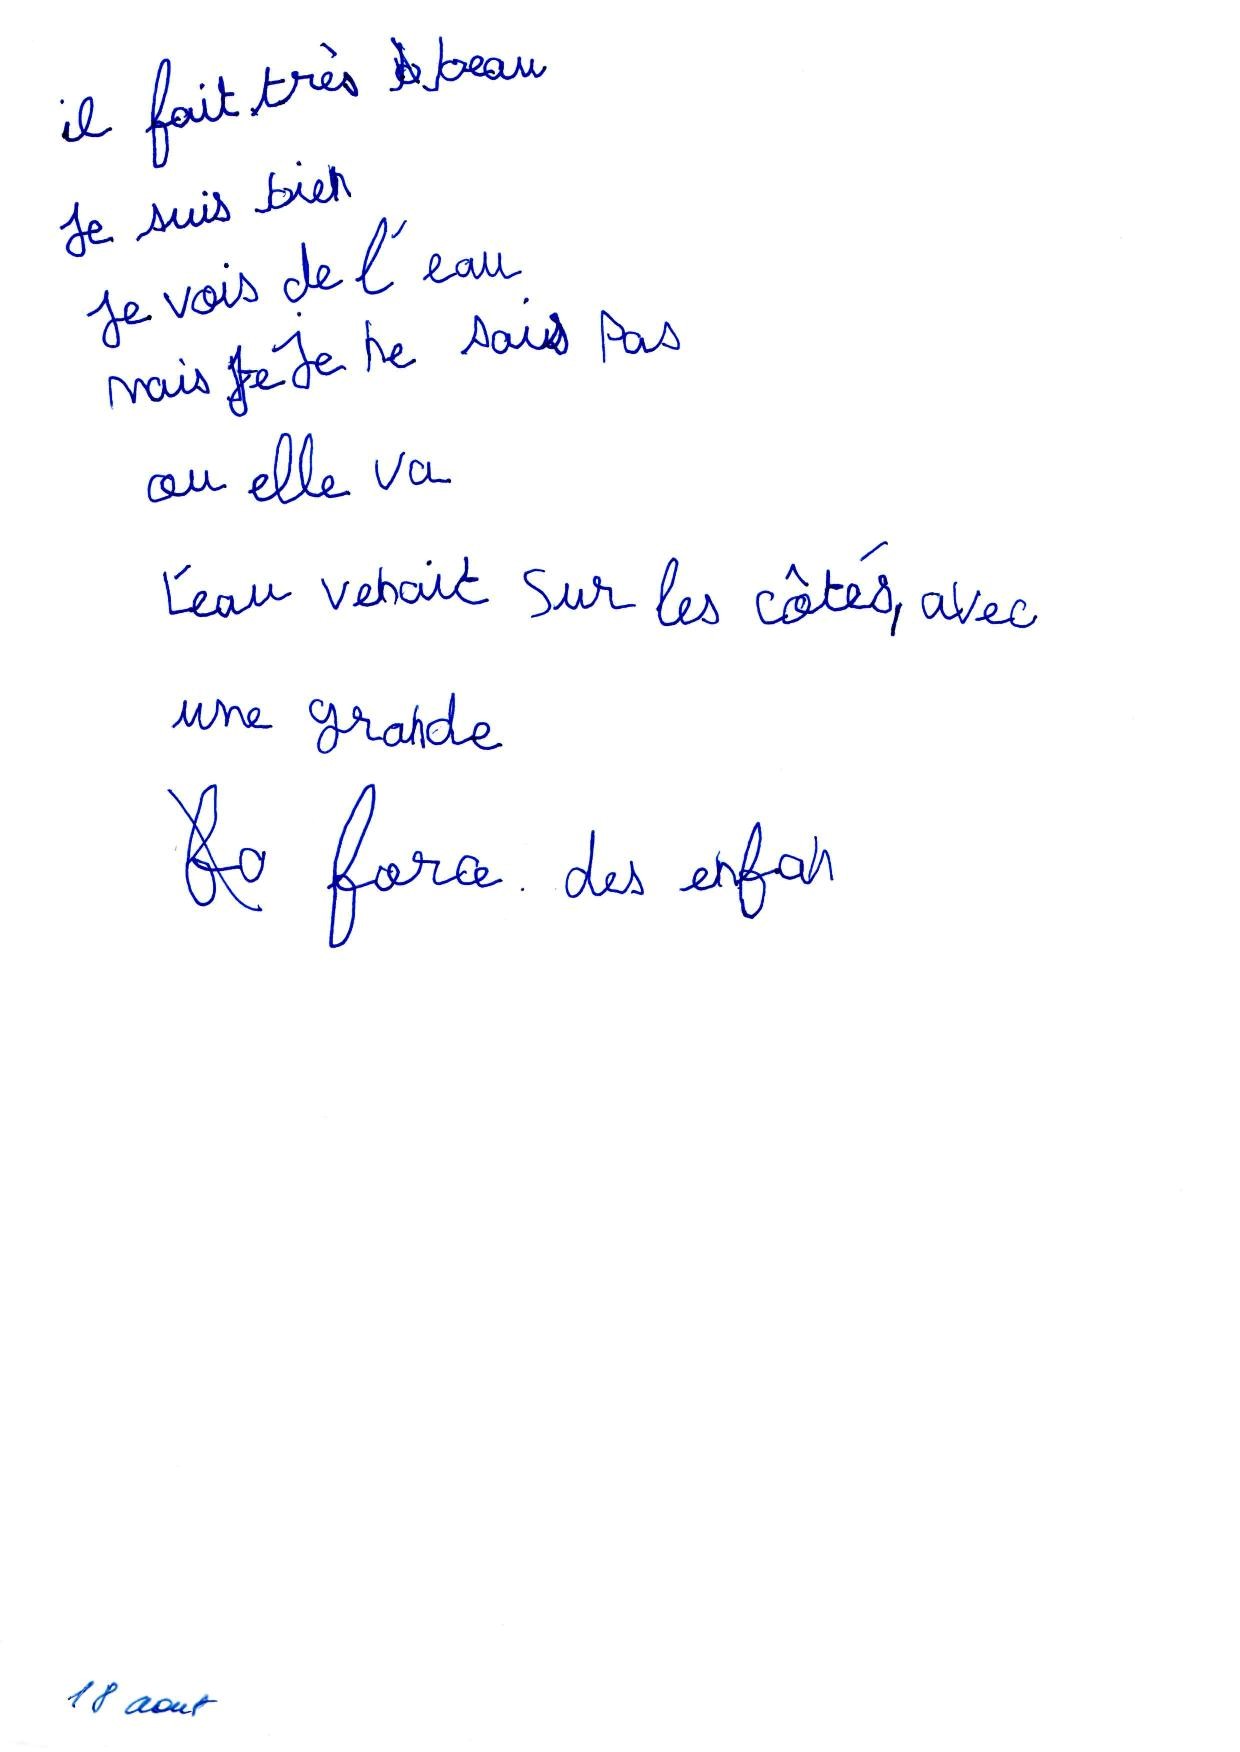 il fait très beau
Je suis bien
Je vois de l'eau
mais Je Je ne sais pas
ou elle va
L'eau venait sur les côtés, avec
une grande
fo force. des enfan
18 aout